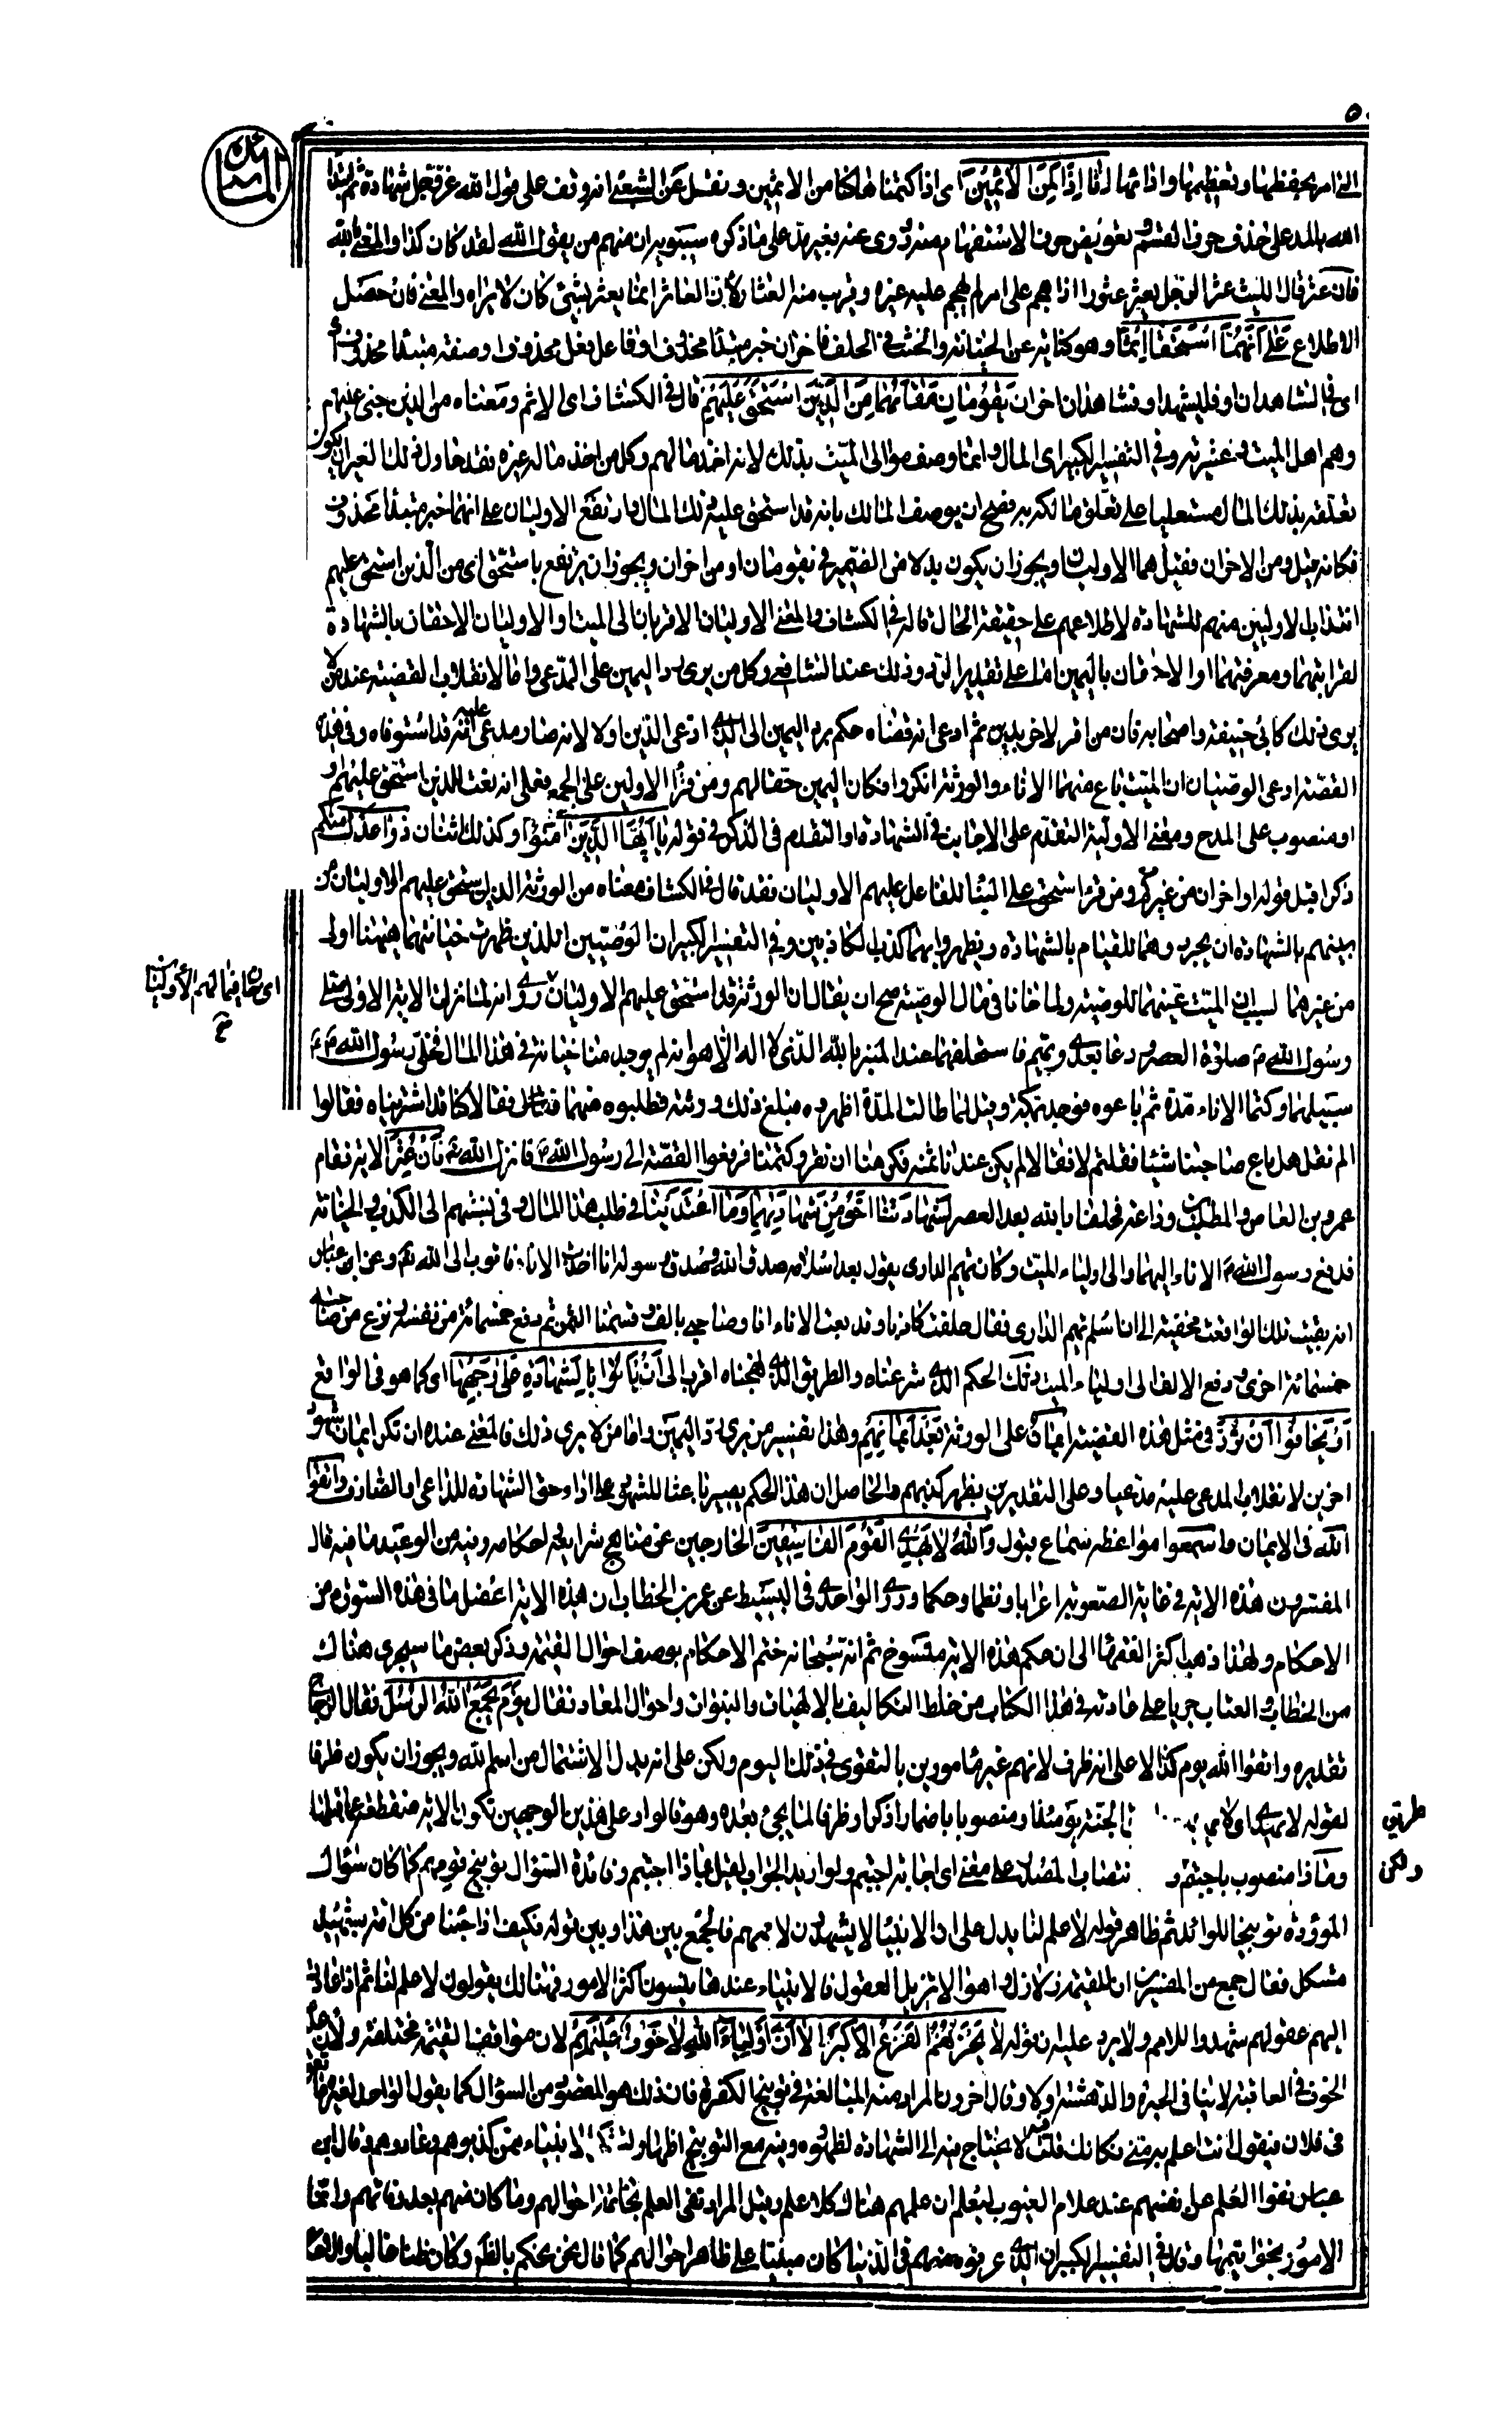 المائدة
التي امر بحفظها وتعظيمها وادائها انا اذا لمن الاثمين اى اذا كتمناها كنا من الاثمين ونقل عن الشعبى انه وقف على قوله الله عز وجل شهادة ثم ابتدأ
الله بالمد على حذف حرف القسم وتعويض حرف الاستفهام منه وروى عنه بغير مد على ما ذكره سيبويه ان منهم من يقول الله لقد كان كذا والمعنى بالله
فان عثر قال الليث عثر الرجل يعثر عثورا اذا هجم على امر لم يهجم عليه غيره وقريب منه العثار لان العاثر انما يعثر بشئ كان لا يراه والمعنى فان حصل
الاطلاع على انهما استحقا اثما وهو كناية عن الخيانة والحنث فى الحلف فاخران خبر مبتدأ محذوف او فاعل فعل محذوف او صفة مبتدأ محذوف
اى فالشاهدان او فليشهد او فشاهدان اخران يقومان مقامهما من الذين استحق عليهم قال فى الكشاف اى الاثم ومعناه من الذين جنى عليهم
وهم اهل الميت وعشيرته وفى التفسير الكبير اى المال وانما وصف موالى الميت بذلك لانه اخذ مالهم وكل من اخذ ماله غيره فقد حاول ذلك الغير ان يكون
تعلقه بذلك المال مستعليا على تعلق مالكه به فصح ان يوصف المالك بانه قد استحق عليه ذلك المال وارتفع الاوليان على انهما خبر مبتدأ محذوف
فكانه قيل ومن الاخران فقيل هما الاوليان ويجوز ان يكون بدلا من الضمير فى يقومان او من اخران ويجوز ان يرتفع باستحق اى من الذين استحق عليهم
انتداب الاوليين منهم للشهادة لاطلاعهم على حقيقة الحال قاله فى الكشاف والمعنى الاوليان الاقربان الى الميت او الاوليان الاحقان بالشهادة
لقرابتهما ومعرفتهما او الاحقان باليمين اما على تقدير الرد وذلك عند الشافعى وكل من يرى رد اليمين على المدعى واما لانقلاب القضية عند من لا
يرى ذلك كابى حنيفة واصحابه فان من اقر لاخر بدين ثم ادعى انه قضاه حكم برد اليمين الى الذى ادعى الدين اولا لانه صار مدعى عليه انه قد استوفاه وفى هذه
القصة ادعى الوصيان ان الميت باع منهما الاناء والورثة انكروا فكان اليمين حقا لهم ومن قرأ الاولين على الجمع فعلى انه نعت للذين استحق عليهم او
او منصوب على المدح ومعنى الاولية التقدم على الاجانب فى الشهادة او التقدم فى الذكر فى قوله يا ايها الذين امنوا وكذلك اثنان ذوا عدل منكم
ذكرا قبل قوله او اخران من غيركم ومن قرأ استحق على البناء للفاعل عليهم الاوليان فقد قال فى الكشاف معناه من الورثة الذين استحق عليهم الاوليان من
بينهم بالشهادة ان يجردوهما للقيام بالشهادة ويظهروا بهما كذب الكاذبين وفى التفسير الكبير ان الوصيين اللذين ظهرت خيانتهما ههنا اولى
من غيرهما لسبب ان الميت عينهما للوصية ولما خانا فى مال الوصية صح ان يقال ان الورثة قد استحق عليهم الاوليان روى انه لما نزلت الاية الاولى صلى
رسول الله صلوة العصر ودعا بعدى وتميم فاستحلفهما عند المنبر بالله الذى لا اله الا هو انه لم يوجد منا خيانة فى هذا المال فخلى رسول الله
سبيلهما وكتما الاناء مدة ثم باعوه فوجد بمكة وقيل لما طالت المدة اظهروه فبلغ ذلك ورثته فطلبوه منهما فقالا كنا قد اشتريناه فقالوا
الم نقل هل باع صاحبنا شيئا فقلتم لا فقالا لم يكن عندنا بينة فكرهنا ان نقر وكتمنا فرفعوا القصة الى رسول الله فانزل الله فان عثر الاية فقام
عمرو بن العاص والمطلب بن وداعة فحلفا بالله بعد العصر لشهادتنا احق من شهادتهما وما اعتدينا فى طلب هذا المال وفى نسبتهم الى الكذب والخيانة
فدفع رسول الله الاناء اليهما والى اولياء الميت وكان تميم الدارى يقول بعد اسلامه صدق الله وصدق رسوله انا اخذت الاناء فاتوب الى الله وعن ابن عباس
انه بقيت تلك الواقعة مخفية الى ان اسلم تميم الدارى فقال حلفت كاذبا وقد بعت الاناء انا وصاحبى بالف وقسمنا الثمن ثم دفع خمسمائة من نفسه ونزع من صاحبه
خمسمائة اخرى ودفع الالف الى اولياء الميت ذلك الحكم الذى شرعناه والطريق الذى نهجناه اقرب الى ان ياتوا بالشهادة على وجهها اى كما هو فى الواقع
او يخافوا ان ترد فى مثل هذه القضية ايمان على الورثة بعد ايمانهم وهذا تفسير من يرى رد اليمين واما من لا يرى ذلك فالمعنى عنده ان تكر ايمان شهود
اخرين لانقلاب المدعى عليه مدعيا وعلى التقديرين يظهر كذبهم والحاصل ان هذا الحكم يصير باعثا للشهود على اداء حق الشهادة للداعى والصارف واتقوا
الله فى الايمان واسمعوا مواعظه سماع قبول والله لا يهدى القوم الفاسقين الخارجين عن مناهج شرايعه واحكامه وفيه من الوعيد ما فيه قال
المفسرون هذه الاية فى غاية الصعوبة اعرابا ونظما وحكما وروى الواحدى فى البسيط عن عمر بن الخطاب ان هذه الاية اعضل ما فى هذه السورة من
الاحكام ولهذا ذهب اكثر الفقهاء الى ان حكم هذه الاية منسوخ ثم انه سبحانه ختم الاحكام بوصف احوال القيمة وذكر بعض ما سيجرى هناك
من الخطاب والعتاب جريا على عادته فى هذا الكتاب من خلط التكاليف بالالهيات والنبوات واحوال المعاد فقال يوم يجمع الله الرسل فقال الزجاج
تقديره واتقوا الله يوم كذا لا على انه ظرف لانهم غير مامورين بالتقوى فى ذلك اليوم ولكن على انه بدل الاشتمال من اسم الله ويجوز ان يكون ظرفا
لقوله لا يهدى اى لا يهديهم الجنة يومئذ او منصوبا باضمار اذكر او ظرفا لما يجئ بعده وهو قالوا وعلى هذين الوجهين تكون الاية منقطعة عما قبلها
وماذا منصوب باجبتم انتصاب المصدر على معنى اى اجابة اجبتم ولو اريد الجواب لقيل بماذا اجبتم وفائدة السؤال توبيخ قومهم كما كان سؤال
الموؤدة توبيخا للوائد ثم ظاهر قوله لا علم لنا يدل على ان الانبياء لا يشهدون لاممهم فالجمع بين هذا وبين قوله فكيف اذا جئنا من كل امة بشهيد
مشكل فقال جمع من المفسرين ان للقيمة زلازل واهوالا تزيل العقول فالانبياء عندها ينسون اكثر الامور فهنالك يقولون لا علم لنا ثم اذا عادت
اليهم عقولهم شهدوا للامم ولا يرد عليه ان قوله لا يحزنهم الفزع الاكبر الا ان اولياء الله لا خوف عليهم لان مواقف القيمة مختلفة ولان عدم
الخوف فى العاقبة لا ينافى الحيرة والدهشة اولا وقال اخرون المراد منه المبالغة فى توبيخ الكفرة فان ذلك هو المقصود من السؤال كما يقول الواحد لغيره ما تقول
فى فلان فيقول انت اعلم به منى فكانك قلت لا يحتاج فيه الى الشهادة لظهوره وفيه مع التوبيخ اظهار لتشكى الانبياء ممن كذبوهم وعادوهم وقال ابن
عباس نفوا العلم عن نفسهم عند علام الغيوب ليعلم ان علمهم هناك كلا علم وقيل المراد نفى العلم بخاتمة احوالهم وما كان منهم بعد وفاتهم وانما
الامور بخواتيمها وقال فى التفسير الكبير ان الذى عرفوه منهم فى الدنيا كان مبنيا على ظاهر احوالهم كما قال نحن نحكم بالظاهر وكان ظنا غالبا
طريق
ولكن